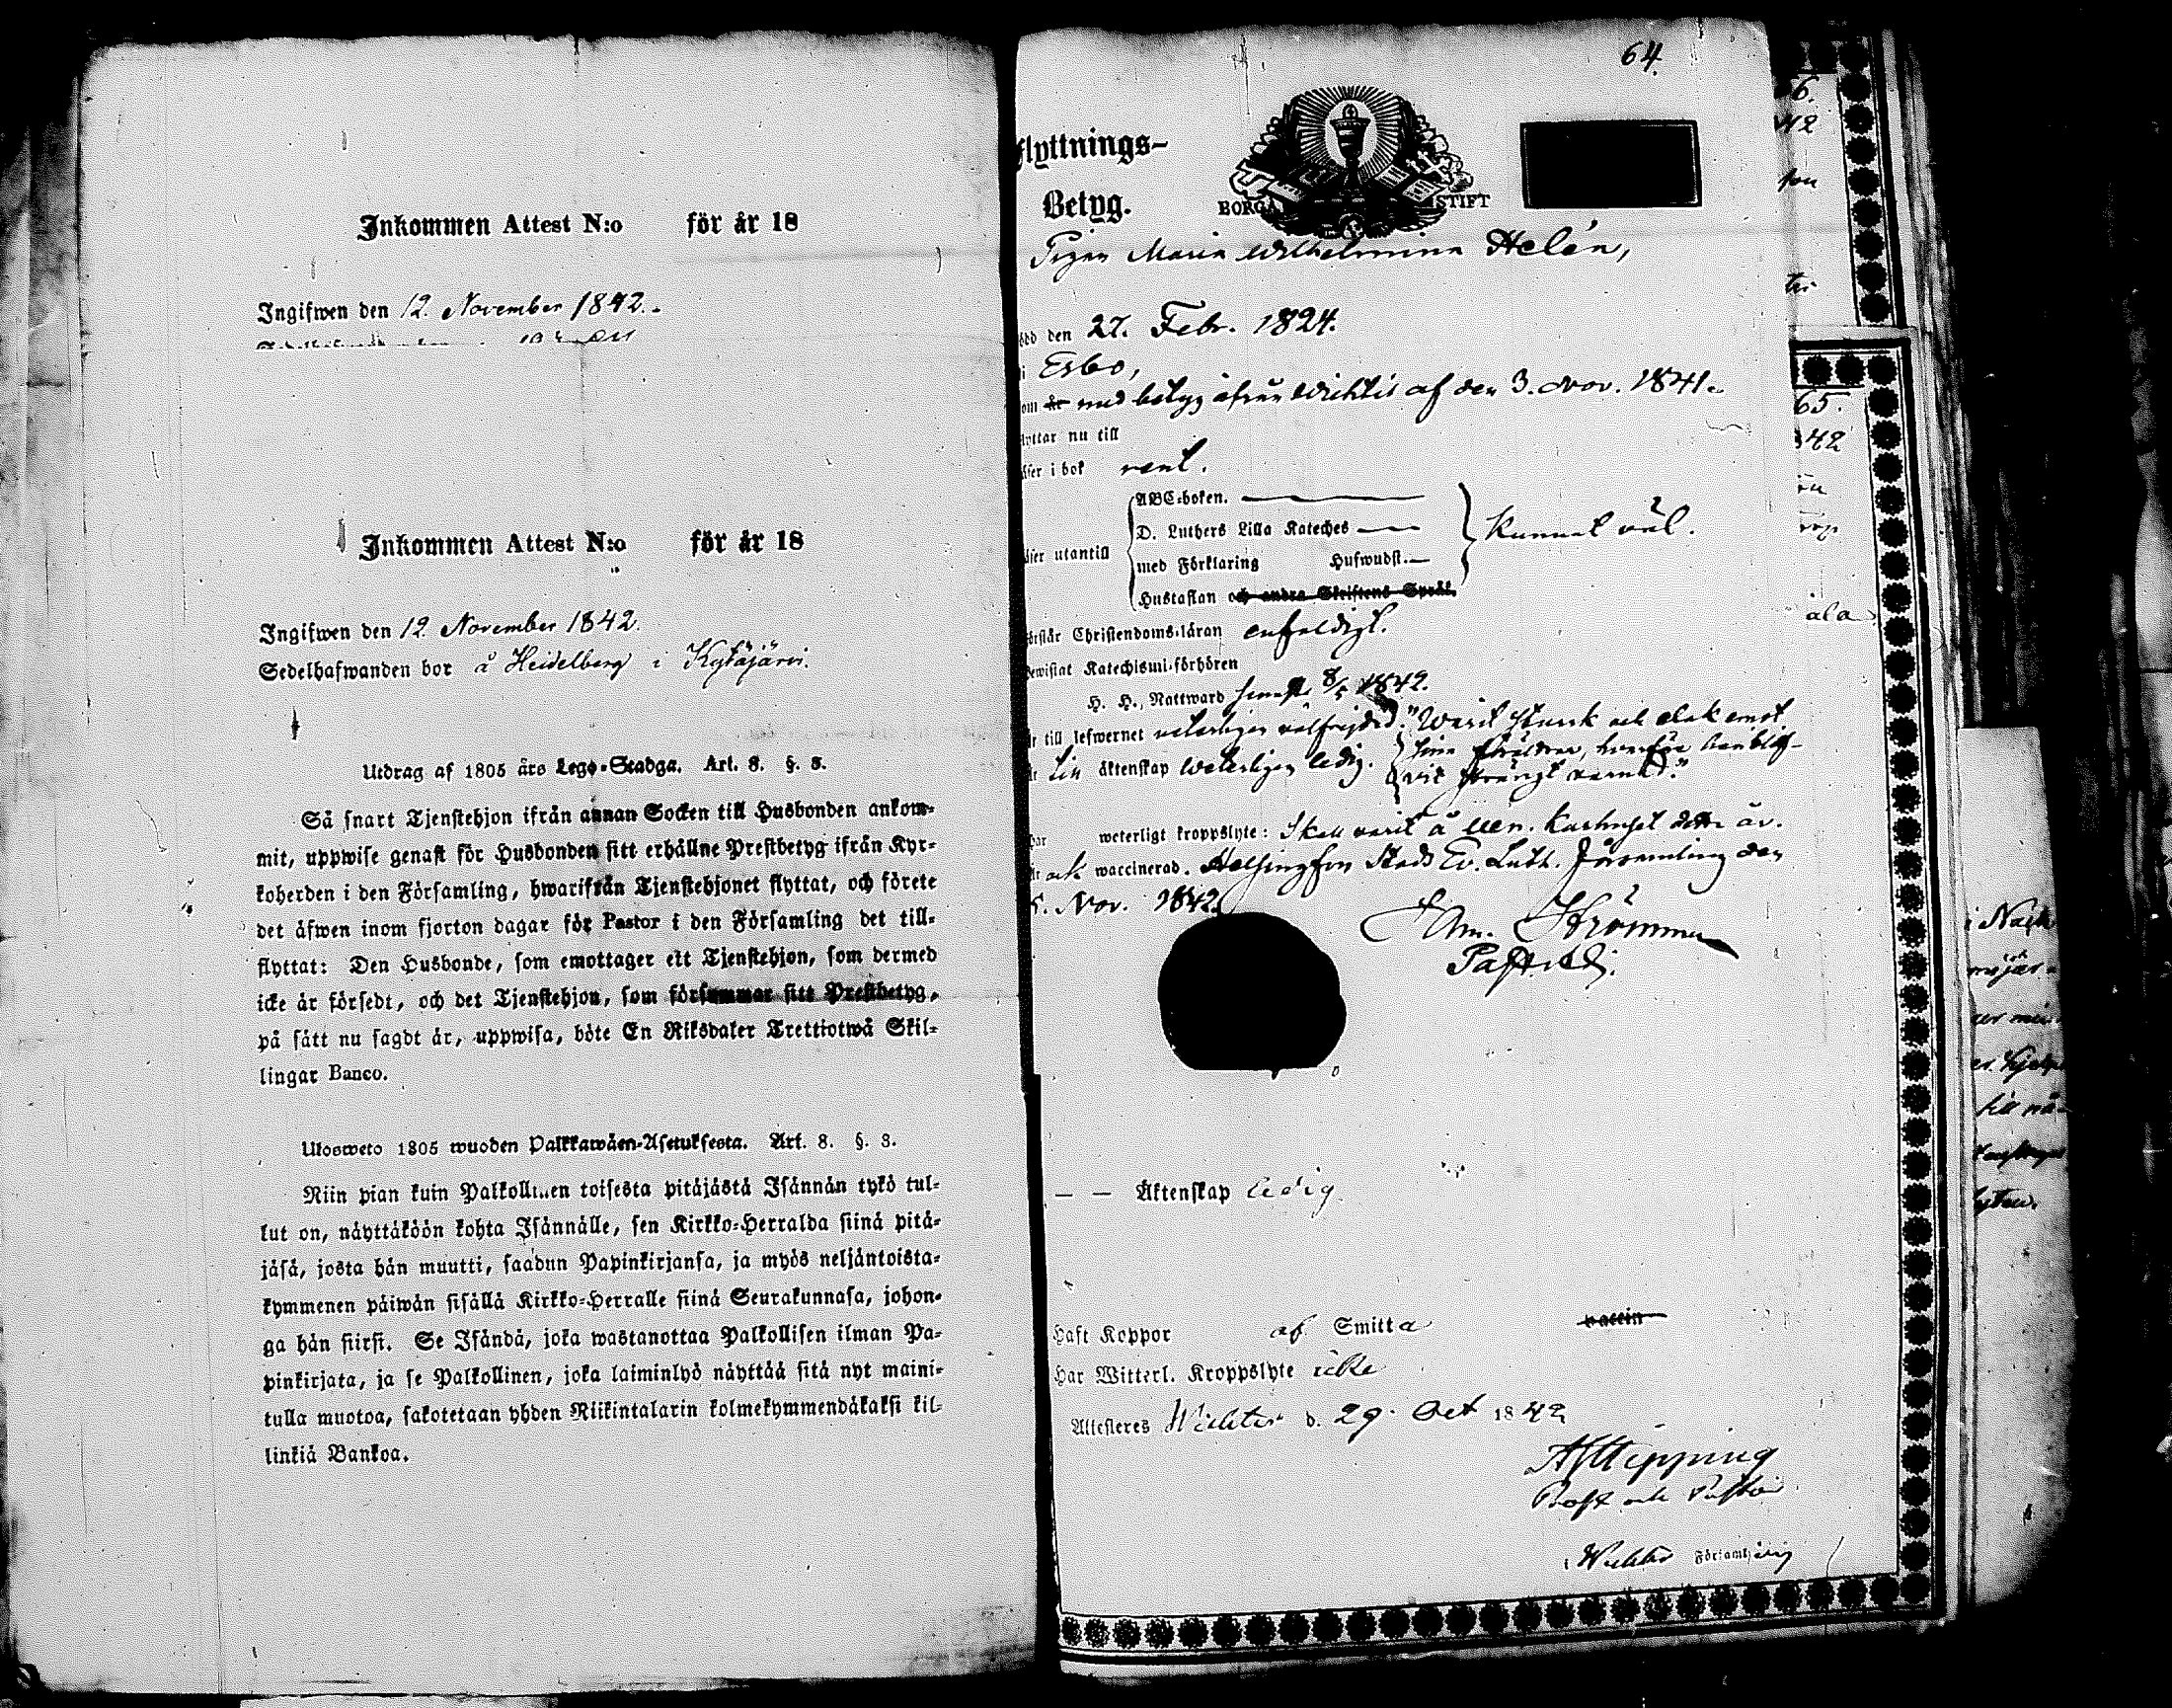 Inkommen Attest N:o för år 18
Ingifwen den 12. November 1842.
Inkommen Attest N:o för år 18
Ingifwen den 12 November 1842.
Sedelhafwanden bor å Heidelberg i Kytäjärvi.
Utdrag af 1805 års Lego-Stadga. Art. 8. §. 3.
Så snart Tjenstehjon ifrån annan Socken till Husbonden ankom-
mit, uppwise genast för Husbonden sitt erhållne Prestbetyg ifrån Kyr-
koherden i den Församling, hwarifrån Tjenstehjonet flyttat, och förete
det äfwen inom fjorton dagar för Pastor i den Församling det till-
flyttat: Den Husbonde, som emottager ett Tjenstehjon, som dermed
icke är försedt, och det Tjenstehjon, som försummar sitt Prestbetyg,
på sätt nu sagdt är, uppwisa, böte En Riksdaler Trettiotwå Skil-
lingar Banco.
Ulosweto 1805 wuoden Palkkawäen-Asetuksesta. Art. 8. §. 3.
Niin pian kuin Palkollinen toisesta pitäjästä Isännän tykö tul-
lut on, näyttäköön kohta Isännälle, sen Kirkko-Herralda siinä pitä-
jäsä, josta hän muutti, saadun Papinkirjansa, ja myös neljäntoista-
kymmenen päiwän sisällä Kirkko-Herralle siinä Seurakunnasa, johon-
ga hän siirsi. Se Isändä, joka wastanottaa Palkollisen ilman Pa-
pinkirjata, ja se Palkollinen, joka laiminlyö näyttää sitä nyt maini-
tulla muotoa, sakotetaan yhden Riikintalarin kolmekymmendäkaksi kil-
linkiä Bankoa.
64.
flyttnings-
Betyg.
BORGÅ STIFT
Pigan Maria Wilhelmina Helén,
ödd den 27. Febr. 1824.
i Esbo,
om år med betyg ifrån Wichtis af den 3. Nov. 1841.
lyttar nu till
äser i bok rent.
äser utantill
ABC-boken.
D. Luthers Lilla Kateches
med Förklaring Hufwudst.
Hustaflan och andra Skriftens Språk.
Kunnat väl.
örstår Christendoms-läran enfaldigt.
ewistat Katechismi-förhören
H. H., Nattward senast 8/5 1842.
r till lefwernet veterligen välfrejdad. "Warit stursk och elak emot
sina föräldrar, hvarföre hon blif-
vit strängt varnad."
r till äktenskap weterligen ledig.
har weterligt kroppslyte: Skall varit å Ven. Kurhuset detta år.
r och waccinerad. Helsingfors Stads Ev. Luth. Församling den
5. Nov. 1842.
Strömmer
— — Äktenskap ledig.
Haft Koppor af Smitta vaccin
Har Witterl. Kroppslyte icke
Attesteres Wichtis d. 29. Oct 1842
Prost och Pastor
i Wichtis Församling
66.
42
65.
42
ala
i Nack
till nå-